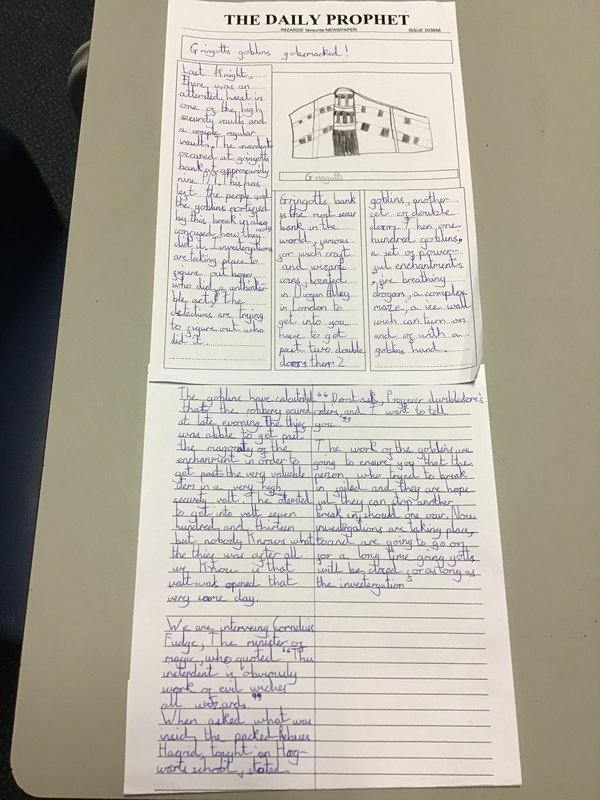 THE DAILY PROPHET
WIZARDS' favourite NEWSPAPER ISSUE 203856
Gringotts goblins gobsmacked!
Last Knight,
there was an
attemted heist in
one of the high
security vaults and
a couple regular
vaults. The inserdent
occured at gringotts
bank at approxamity
nine
This has
left the people and
the goblins mortifyed
by this break in also
confused how they really
did it. Investergations
are taking place to
figure out
who did a
ble act. The
detectives are trying
to figure out who
did it.
Gringotts
Gringotts bank
is the most secur
bank in the
world, famous
for wich craft
and wizard
coins, located
in Diagon alley
in London to
get into you
have to get
past two double
doors then 2
goblins, another
set of double
doors. Then one
hundred goblins,
a set of power-
ful enchantments
, fire breathing
dragon, a complex
maze, a ice wall
wich can turn on
and of with a
goblins hand.
The goblins have calculated
that the robbery
at late evening. The thief
was abble to get past
the magoraty of the
enchanment in order to
get past the very valuble
item in a very high
security valt. The
to get into valt seven
hundred and thirteen
but nobody Knows what
the thief was after all
we Know is that
valt was opened that
very same day.
We are interveing Cornelius
Fudge, The minister of
magic, who quoted "This
inderdent is obviously
work of evil wiches
all wizards."
When asked what was
inside the packed Rebeus
Hagrid, taught in Hog-
warts school, stated
"Dont ask, Proffesser dumbledore's
orders, and I wont to tell
you."
The work of the goblins are
going to ensure you that the
person who tryed to break
in failed and they are hope
full they can stop another
break in should one ocur. Now
investergations are taking place,
to and are going to go on
for a long time gring gotts
will be closed for as long as
the investergation